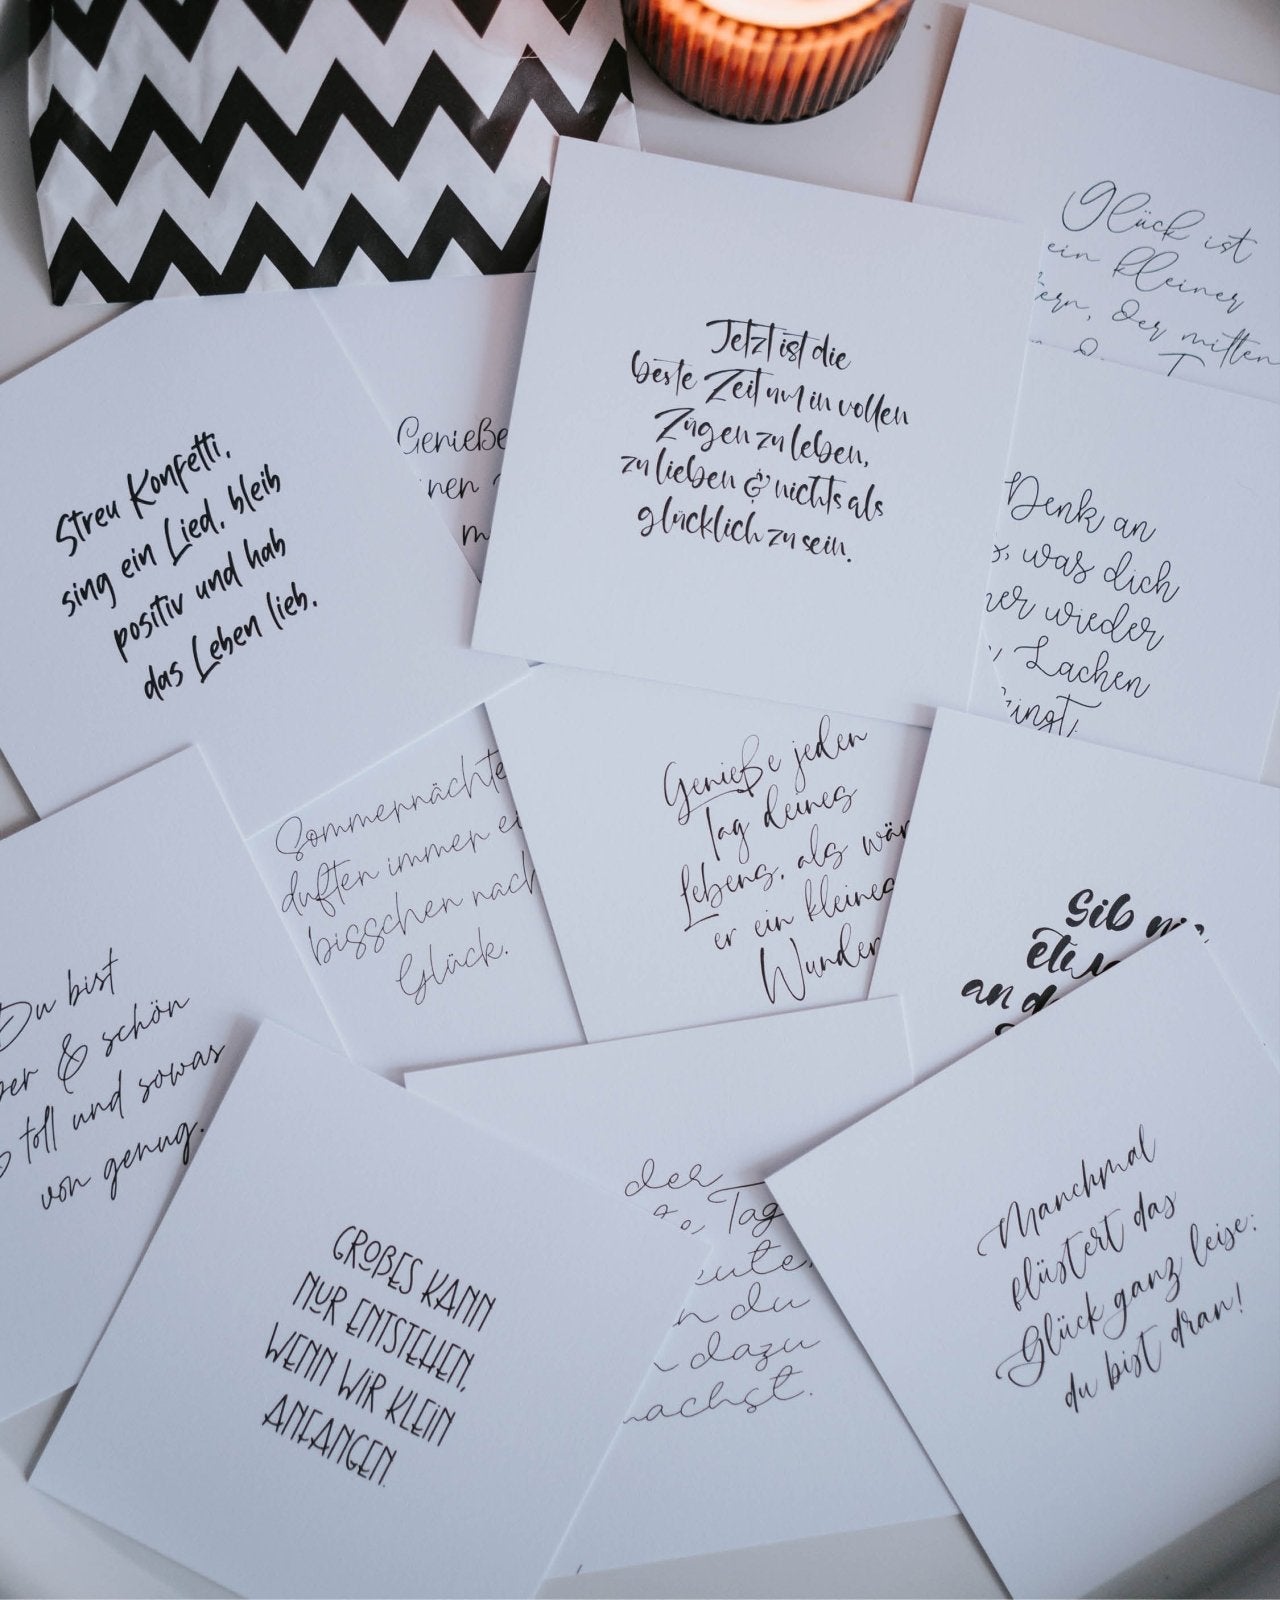 Glück ist
ein kleiner
der mitten
Jetzt ist die
beste Zeit um in vollen
Zügen zu leben,
zu lieben & nichts als
glücklich zu sein.
Streu Konfetti,
sing ein Lied, bleib
positiv und hab
das Leben lieb.
Genieße
m
Denk an
was dich
wieder
Lachen
Sommernächte
duften immer ei
bisschen nach
Glück.
Genieße jeden
Tag deines
Lebens, als wär
er ein kleines
Wunder
Gib
an d
Du bist
& schön
toll und sowas
von genug.
GROßES KANN
NUR ENTSTEHEN,
WENN WIR KLEIN
ANFANGEN.
der
Tag
eute,
n du
dazu
achst.
Manchmal
flüstert das
Glück ganz leise:
du bist dran!